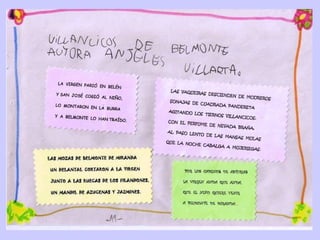 VILLANCICOS DE BELMONTE
AUTORA ANJELES VILLARTA.
LA VIRGEN PARIÓ EN BELÉN
Y SAN JOSÉ COGIÓ AL NIÑO,
LO MONTARON EN LA BURRA
Y A BELMONTE LO HAN TRAÍDO.
LAS VAQUEIRAS DESCIENDEN DE MODREROS
SONAJAS DE CUADRADA PANDERETA
AGITANDO LOS TIERNOS VILLANCICOS.
CON EL PERFUME DE NEVADA BRAÑA,
AL PASO LENTO DE LAS MANSAS MOLAS
QUE LA NOCHE CABALGA A
LAS MOZAS DE BELMONTE DE MIRANDA
UN DELANTAL CORTARON A LA VIRGEN
JUNTO A LAS RUECAS DE LOS FILANDONES,
UN MANDIL DE AZUCENAS Y JAZMINES.
POR LOS CAMINOS DE ASTURIAS
LA VIRGEN ANDA QUE ANDA,
QUE EL NIÑO QUIERE VENIR
A BELMONTE DE MIRANDA.